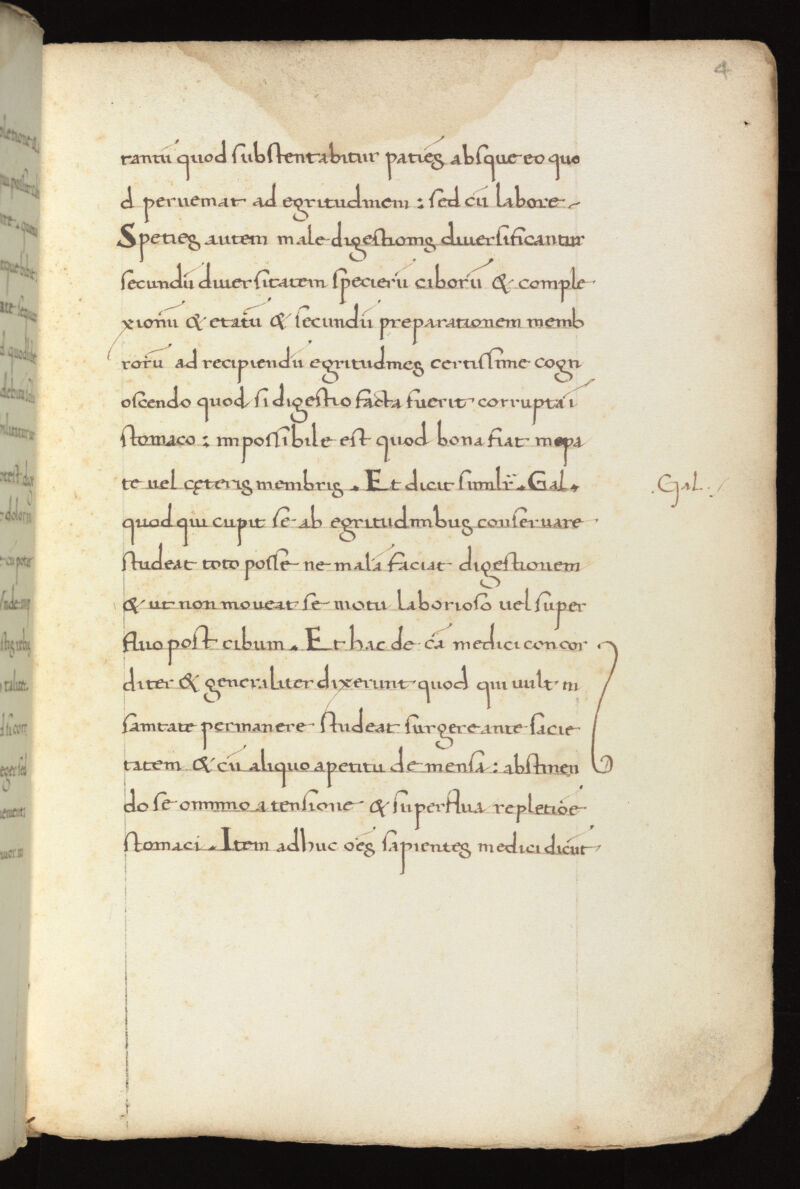 4
rantū quod substentabitur patieš absque eo quo
d perueniat ad egritudinem : sed cū labore ~
Spetieš autem male digestioniš diuersificantur
secundū diuersitatem specierū ciborū & comple
xionū & etatū & secundū preparationem memb
rorū ad recipiendū egritudineš certissime cogn
oscendo quod si digestio facta fuerit corrupta ī
stomaco : impossibile est quod bona fiat in epa
te uel cęteriš membriš . Et dicit similr̄ . Gal .
. Gal . /
quod qui cupit se ab egritudinibuš conseruare
studeat toto posse ne malā faciat digestionem
& ut non moueat se motu laborioso uel super
fluo post cibum . Et hac de cā medici concor
diter & generaliter dixerunt quod qui uult in
sanitate permanere studeat surgere ante sacie
tatem & cū aliquo apetitu de mensa : abstinen
do se omnino a tensione & superflua repletiōe
stomaci . Item adhuc oēš sapienteš medici dicūt